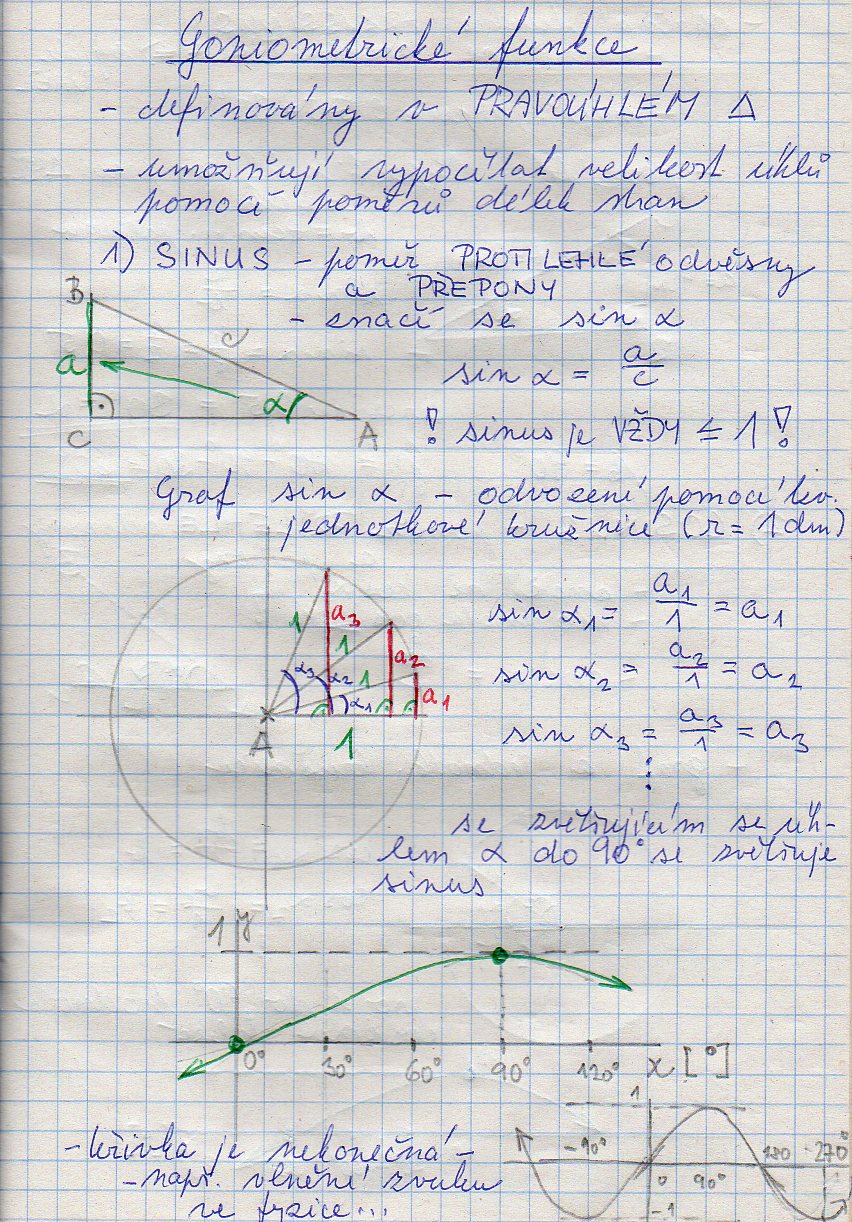 Goniometrické funkce
- definovány v PRAVOÚHLÉM Δ
- umožňují vypočítat velikost úhlů
pomocí poměrů délek stran
1) SINUS - poměr PROTILEHLÉ odvěsny
a PŘEPONY
- značí se sin α
B
c
a
α
C
A
sin α = a/c
! sinus je VŽDY ≤ 1 !
Graf sin α - odvození pomocí tzv.
jednotkové kružnice (r = 1 dm)
1 a₃
1 a₂
α₃ α₂ 1 a₁
α₁
A
1
sin α₁ = a₁/1 = a₁
sin α₂ = a₂/1 = a₂
sin α₃ = a₃/1 = a₃
⋮
se zvětšujícím se úh-
lem α do 90° se zvětšuje
sinus
1 y
0° 30° 60° 90° 120° x [°]
- křivka je nekonečná -
- např. vlnění zvuku
ve fyzice...
1
-90° 0 90° 180 270°
-1